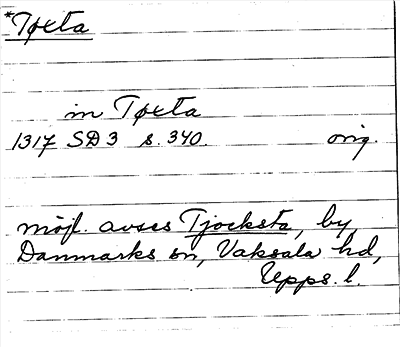 *Tøxta
in Tøxta
1317 SD 3 s. 340. orig.
möjl. avses Tjocksta, by,
Danmarks sn, Vaksala hd,
Upps. l.